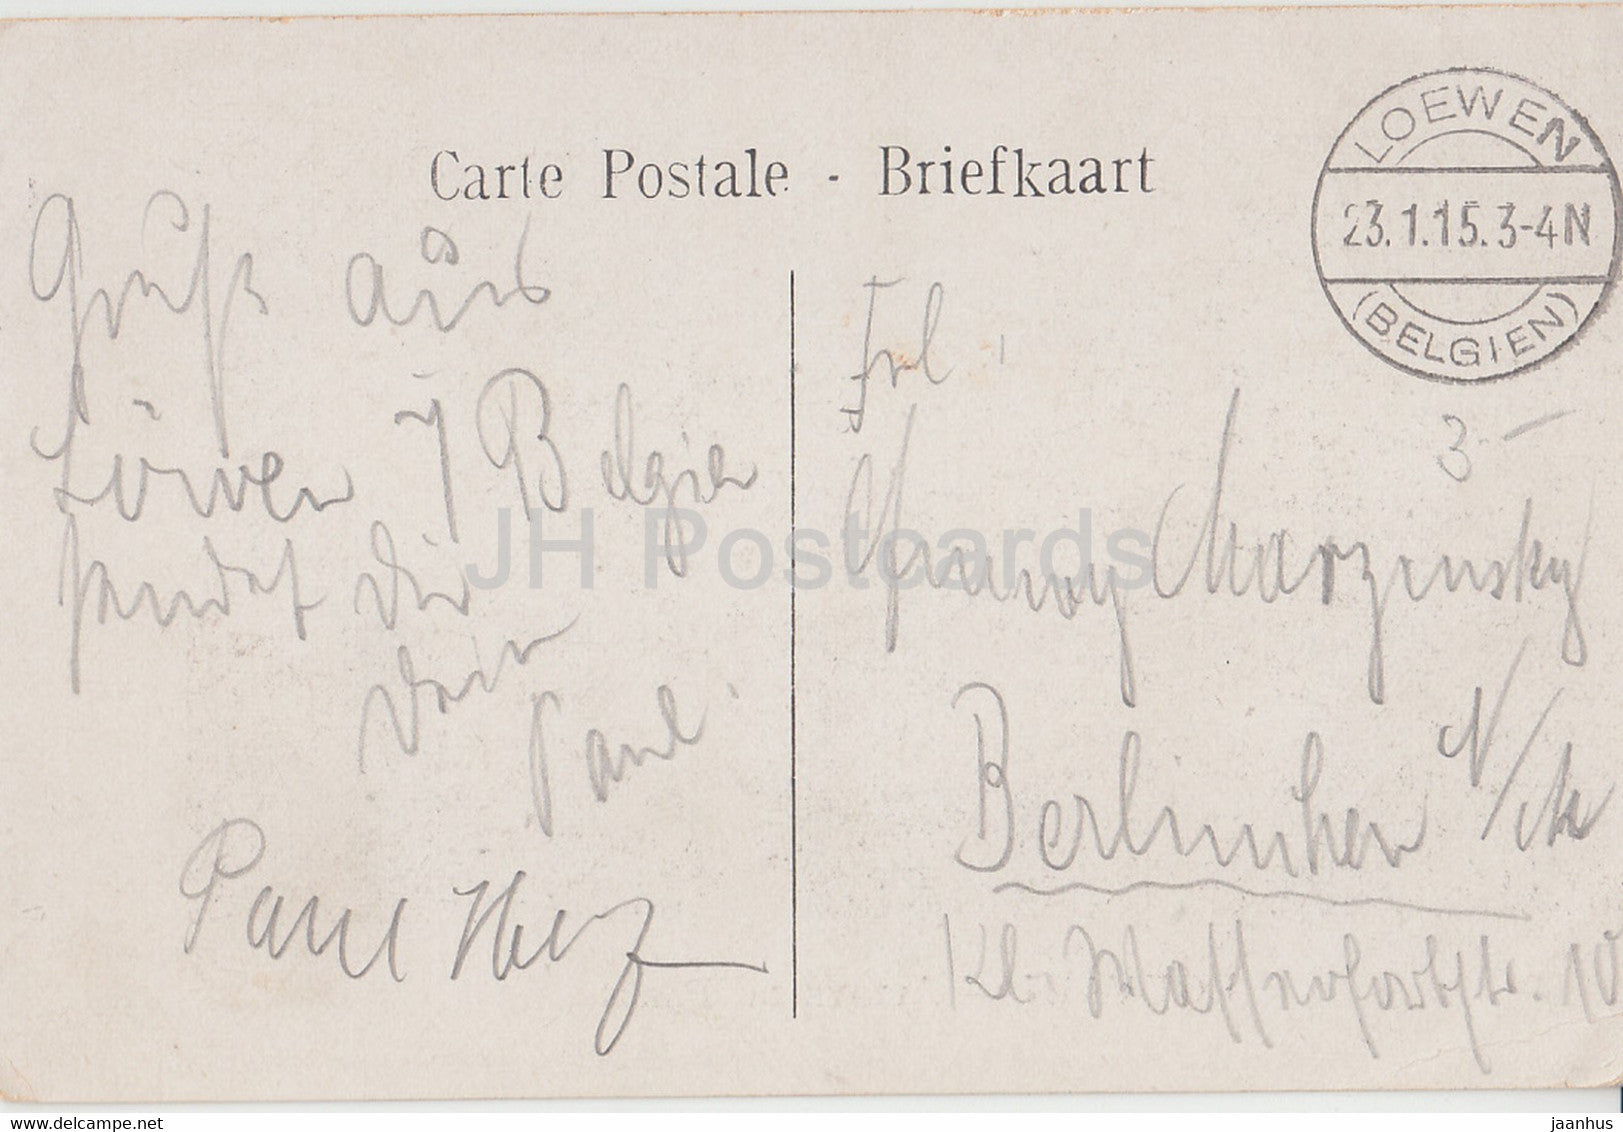 Carte Postale - Briefkaart
LOEWEN
23.1.15.3-4N
(BELGIEN)
Gruß aus
Löwen / Belgien
sendet dir
dein
Paul.
Paul Herz
Frl.
3.-
Marzinsky
Berlinchen N/M
Kl. Wasserpfortstr. 10
JH Postcards
www.delcampe.net
jaanhus